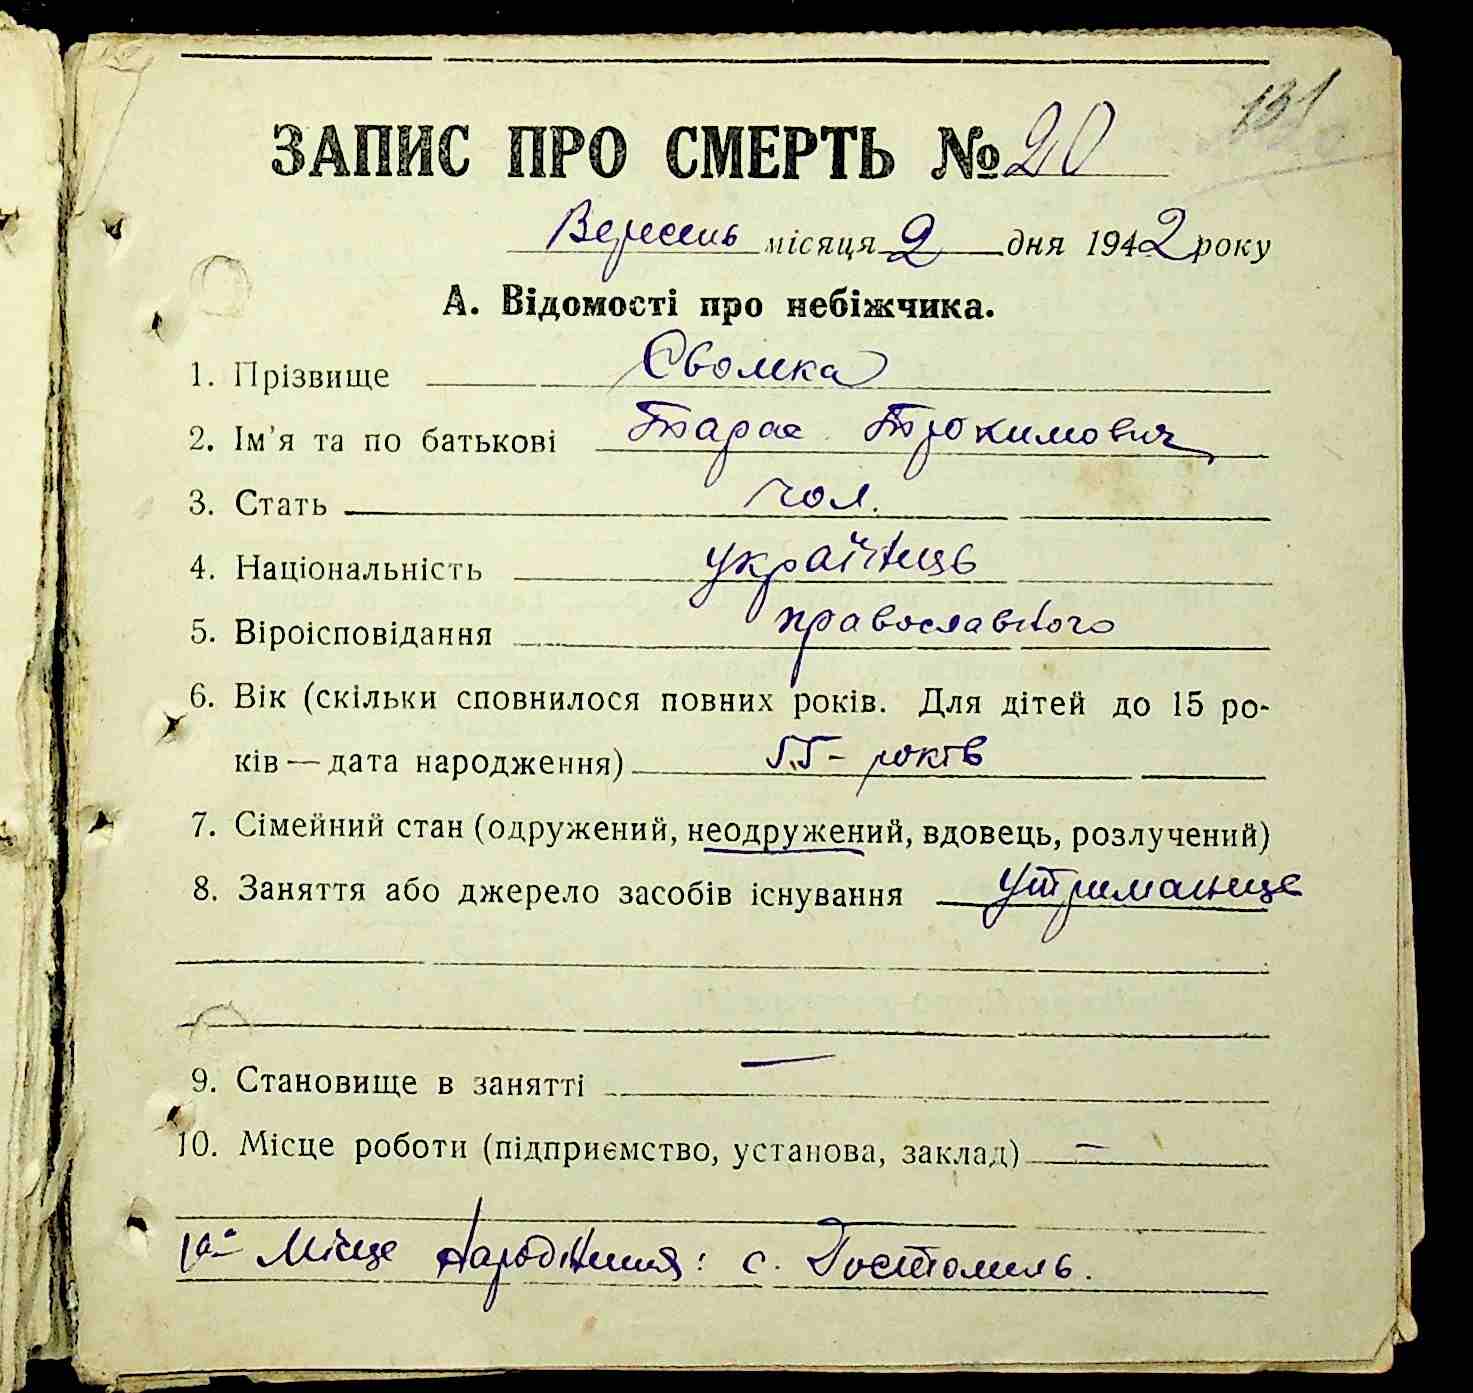 131
ЗАПИС ПРО СМЕРТЬ № 20
Вересень місяця 2 дня 1942 року
А. Відомості про небіжчика.
1. Прізвище Сволка
2. Ім'я та по батькові Тарас Трокимович
3. Стать чол.
4. Національність українець
5. Віроісповідання православного
6. Вік (скільки сповнилося повних років. Для дітей до 15 ро-
ків — дата народження) 55 - років
7. Сімейний стан (одружений, неодружений, вдовець, розлучений)
8. Заняття або джерело засобів існування утриманце
9. Становище в занятті —
10. Місце роботи (підприємство, установа, заклад) —
1а- Місце народження: с. Гостомель.